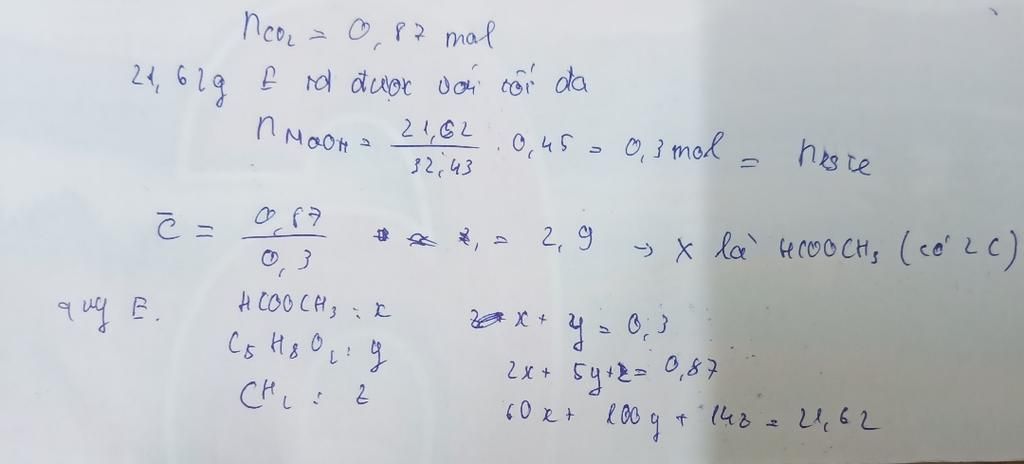 nCO₂ = 0,87 mol
21,62g E rd được với tối đa
nNaOH = 21,62/32,43 . 0,45 = 0,3 mol = neste
C̄ = 0,87/0,3 = 2,9 → X là HCOOCH₃ (có 2C)
quy E. HCOOCH₃ : x
C₅H₈O₂ : y
CH₂ : z
x + y = 0,3
2x + 5y + z = 0,87
60x + 100y + 14z = 21,62